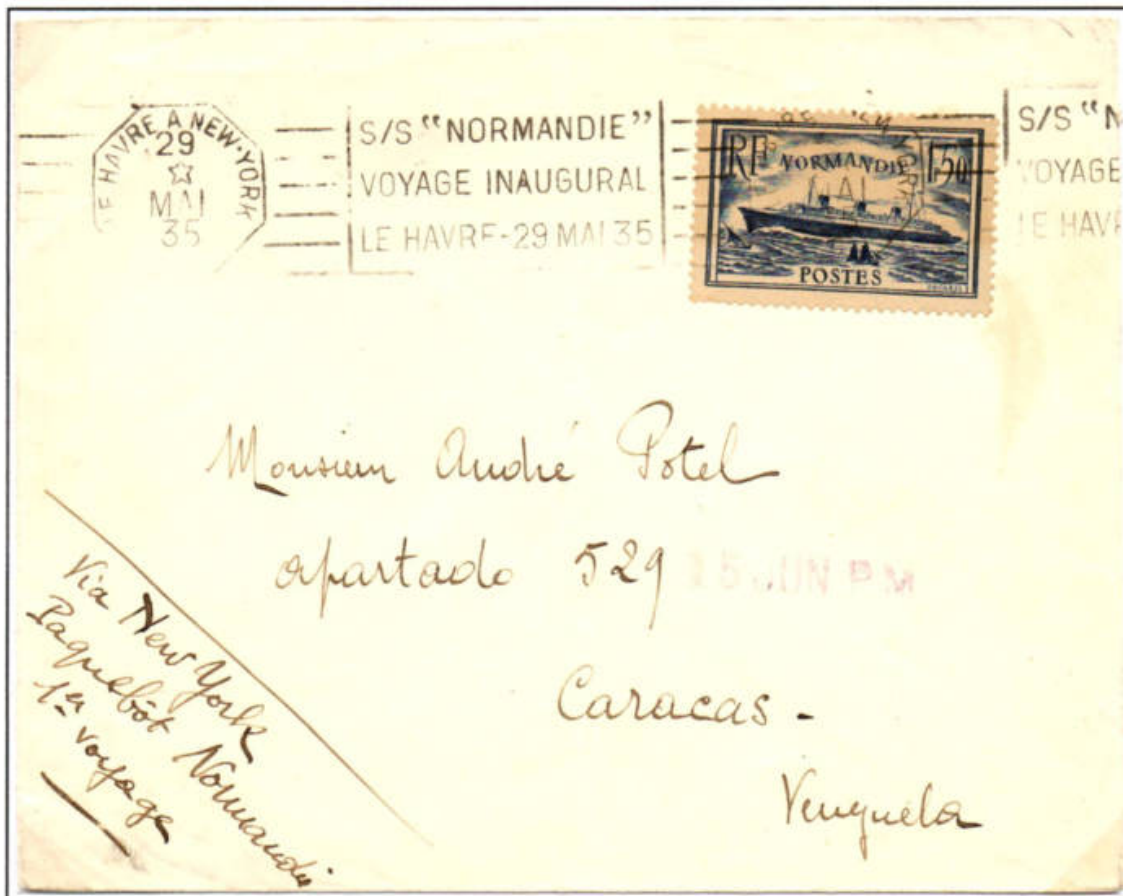 LE HAVRE A NEW-YORK
29
MAI
35
S/S "NORMANDIE"
VOYAGE INAUGURAL
LE HAVRE-29 MAI 35
RF NORMANDIE 1F,50
MAI
POSTES
S/S "N
VOYAGE
LE HAVR
Monsieur André Potel
apartado 529
15 JUN PM
Caracas -
Venezuela
Via New York
Paquebôt Normandie
1er voyage